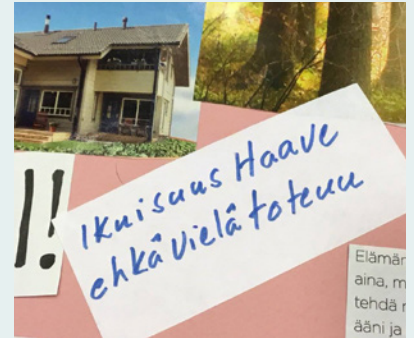 !!
Ikuisuus Haave
ehkä vielä toteuu
Elämän
aina, m
tehdä
ääni ja